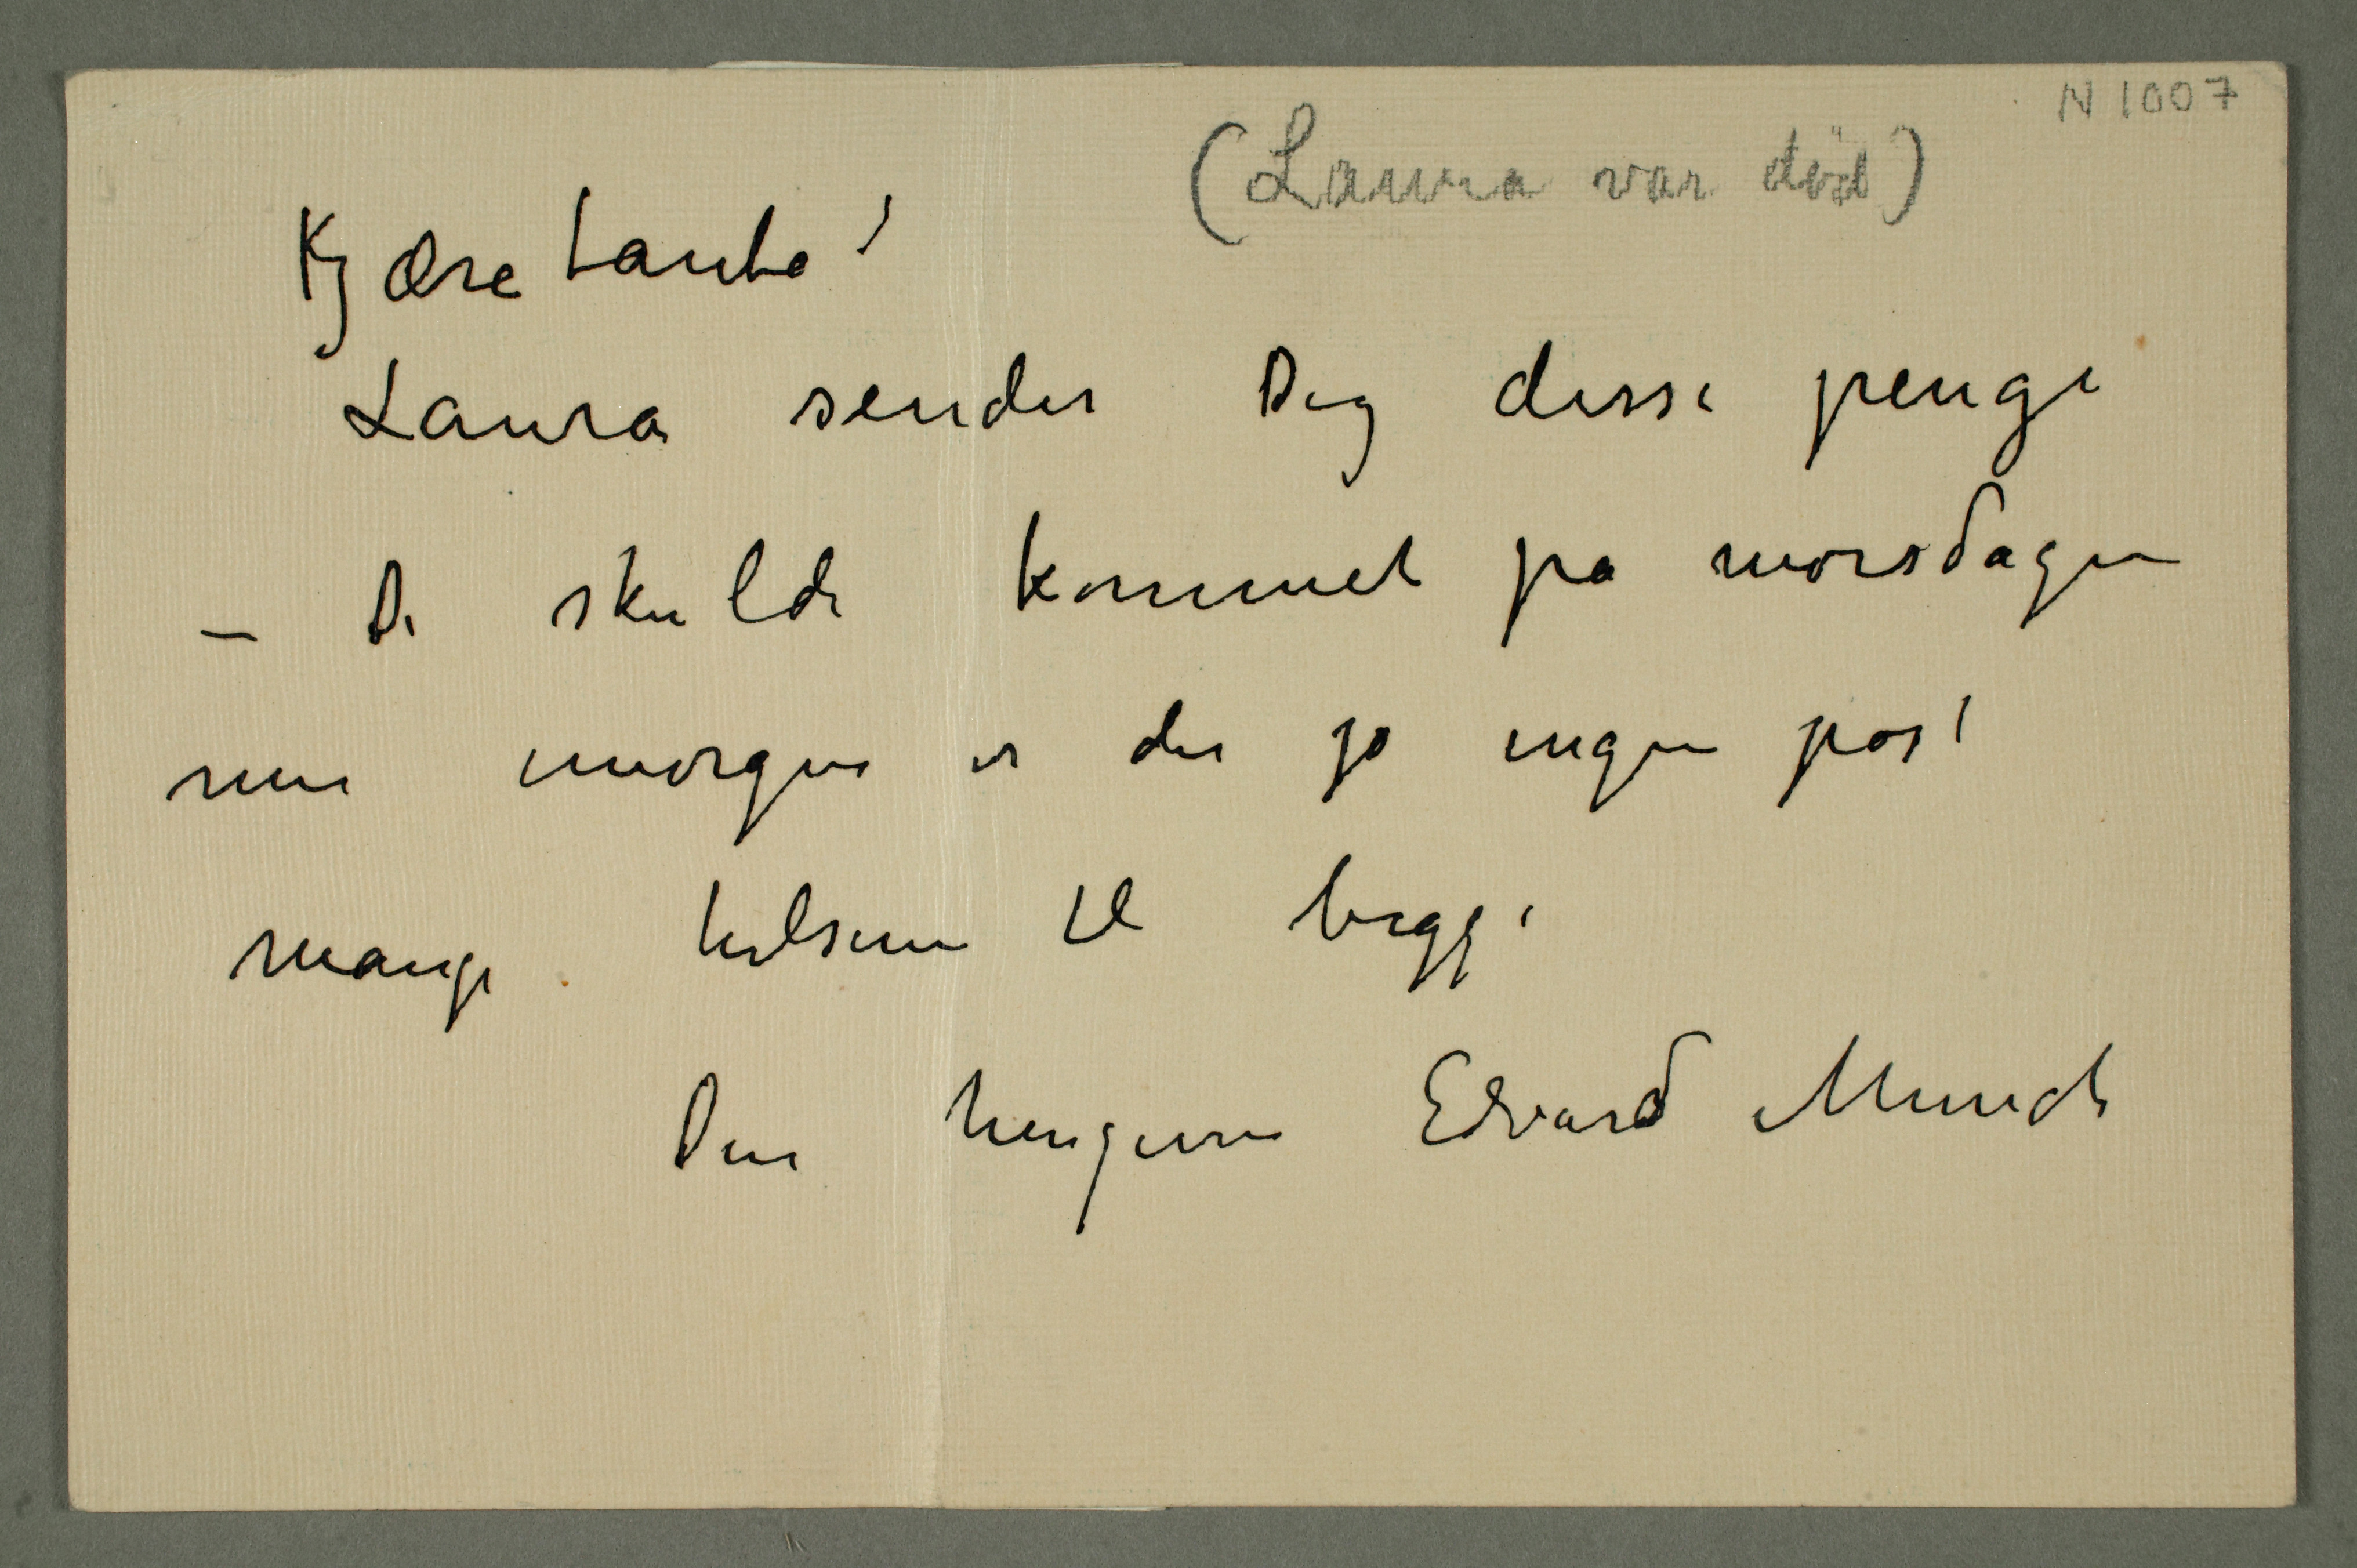 N 1007
(Laura var död)
Kjære tante!
Laura sender Dig disse penge
– De skulde kommet på morsdagen
men imorgen er der jo ingen post
Mange hilsener til begge
Din hengivne Edvard Munch